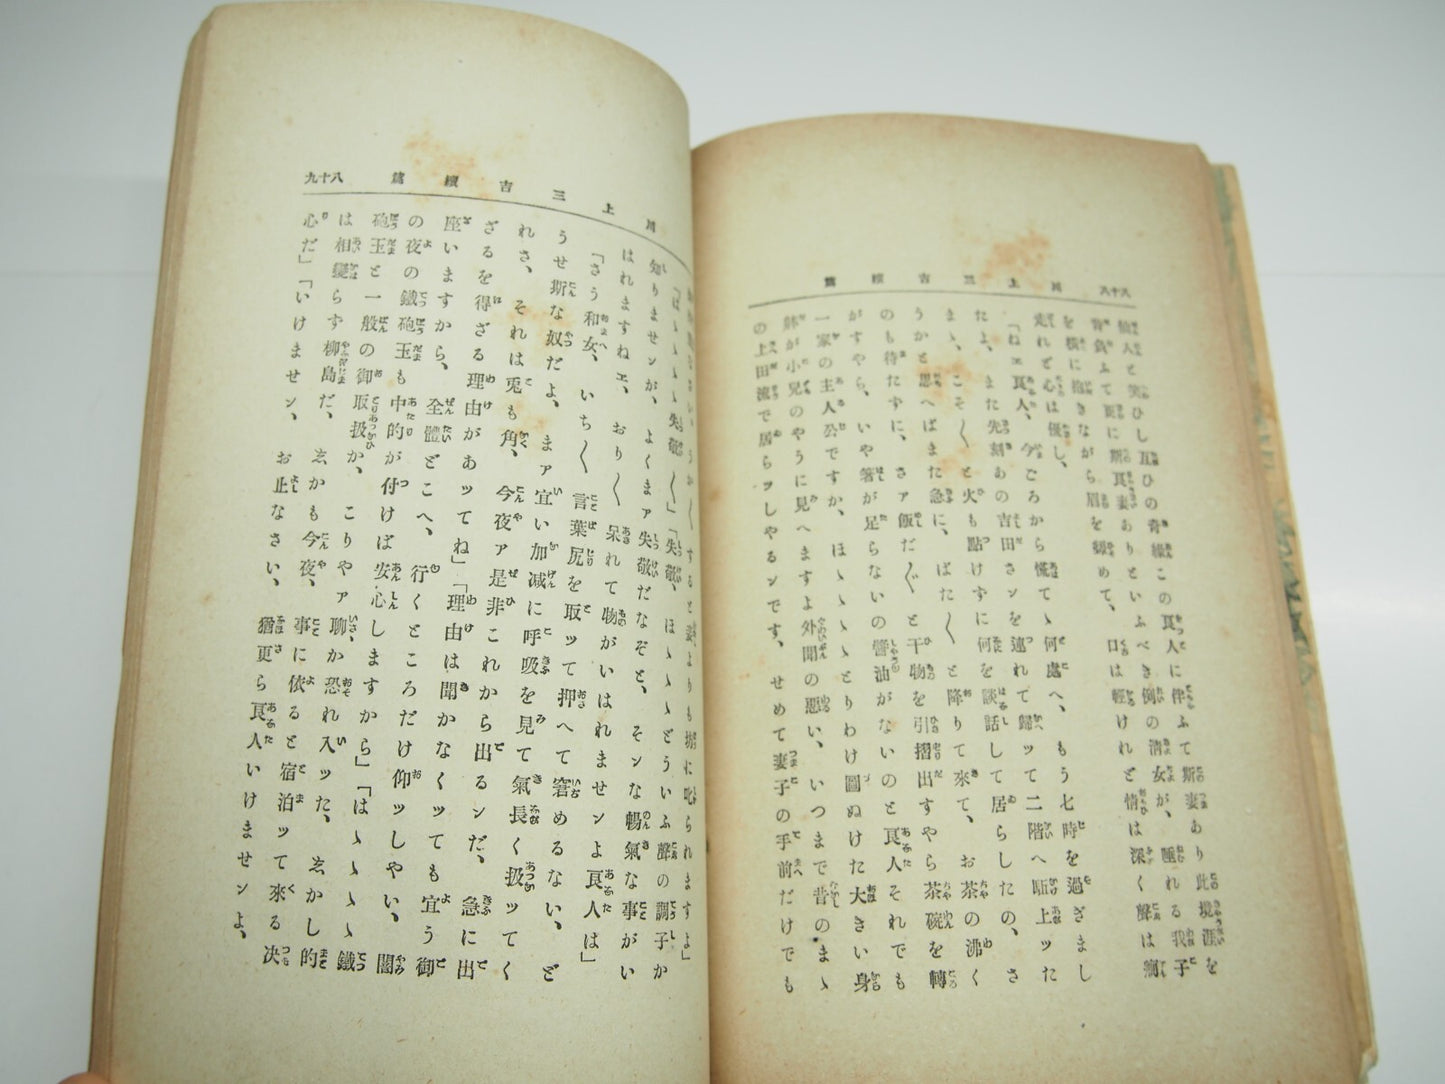 八十八 川上三吉續篇
仙人と笑ひし互ひの背縫この良人に伴ふて斯妻あり此境涯を
背負ふて更に斯良妻ありといふべき例の淸女が、睡れる我子
を橫に抱きながら眉を顰めて、口は輕けれど情は深く聲は
荒れど心は優し、
「ねエ良人、今ごろから慌てゝ何處へ、もう七時を過ざまし
たよ、また先刻あの吉田さンを連れて歸ッて二階へ駈上ッた
まゝ、こそ〱と火も點けずに何を談話して居らしたの、さ
うかと思へばまた急に、ばた〱と降りて來て、お茶の沸く
のも待たずに、さァ飯だ〲と干物を引摺出すやら茶碗を轉
がすやら、いや箸が足らないの醬油がないのと良人それでも
一家の主人公ですか、ほゝゝゝとりわけ圖ぬけた大きい身
躰が小兒のやうに見へますよ外聞の悪い、いつまで昔のまゝ
の上田流で居らッしやるンです、せめて妻子の手前だけでも
八十九 川上三吉續篇
すると妾よりも坊に叱られますよ」
「はゝゝゝ失敬〱」「失敬、ほゝゝゝどういふ聲の調子か
知りませンが、よくまァ失敬だなぞと、そンな暢氣な事がい
はれますねエ、おり〱呆れて物がいはれませンよ良人は」
「さう和女、いち〱言葉尻を取ッて押へて窘めるない、ど
うせ斯な奴だよ、まァ宜い加減に呼吸を見て氣長く扱ッてく
れさ、それは兎も角、今夜ァ是非これから出るンだ、急に出
ざるを得ざる理由があッてね」「理由は聞かなくッても宜う御
座いますから、全體どこへ、行くところだけ仰ッしやい、闇
の夜の鐵砲玉も中的が付けば安心しますから」「はゝゝゝ鐵
砲玉と一般の御取扱か、こりやァ聊か恐れ入ッた、ゑかし的
は相變らず柳島だ、ゑかも今夜、事に依ると宿泊ッて來る決
心だ」「いけませン、お止なさい、猶更ら良人いけませンよ、